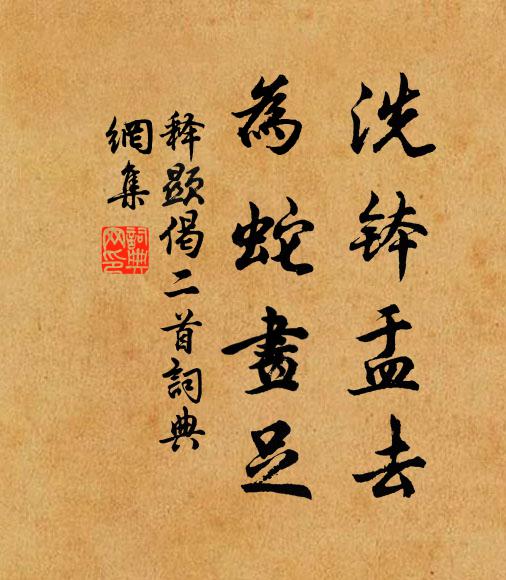 洗鉢盂去
為蛇畫足
释顯偈二首詞典
網集
詞典
网印